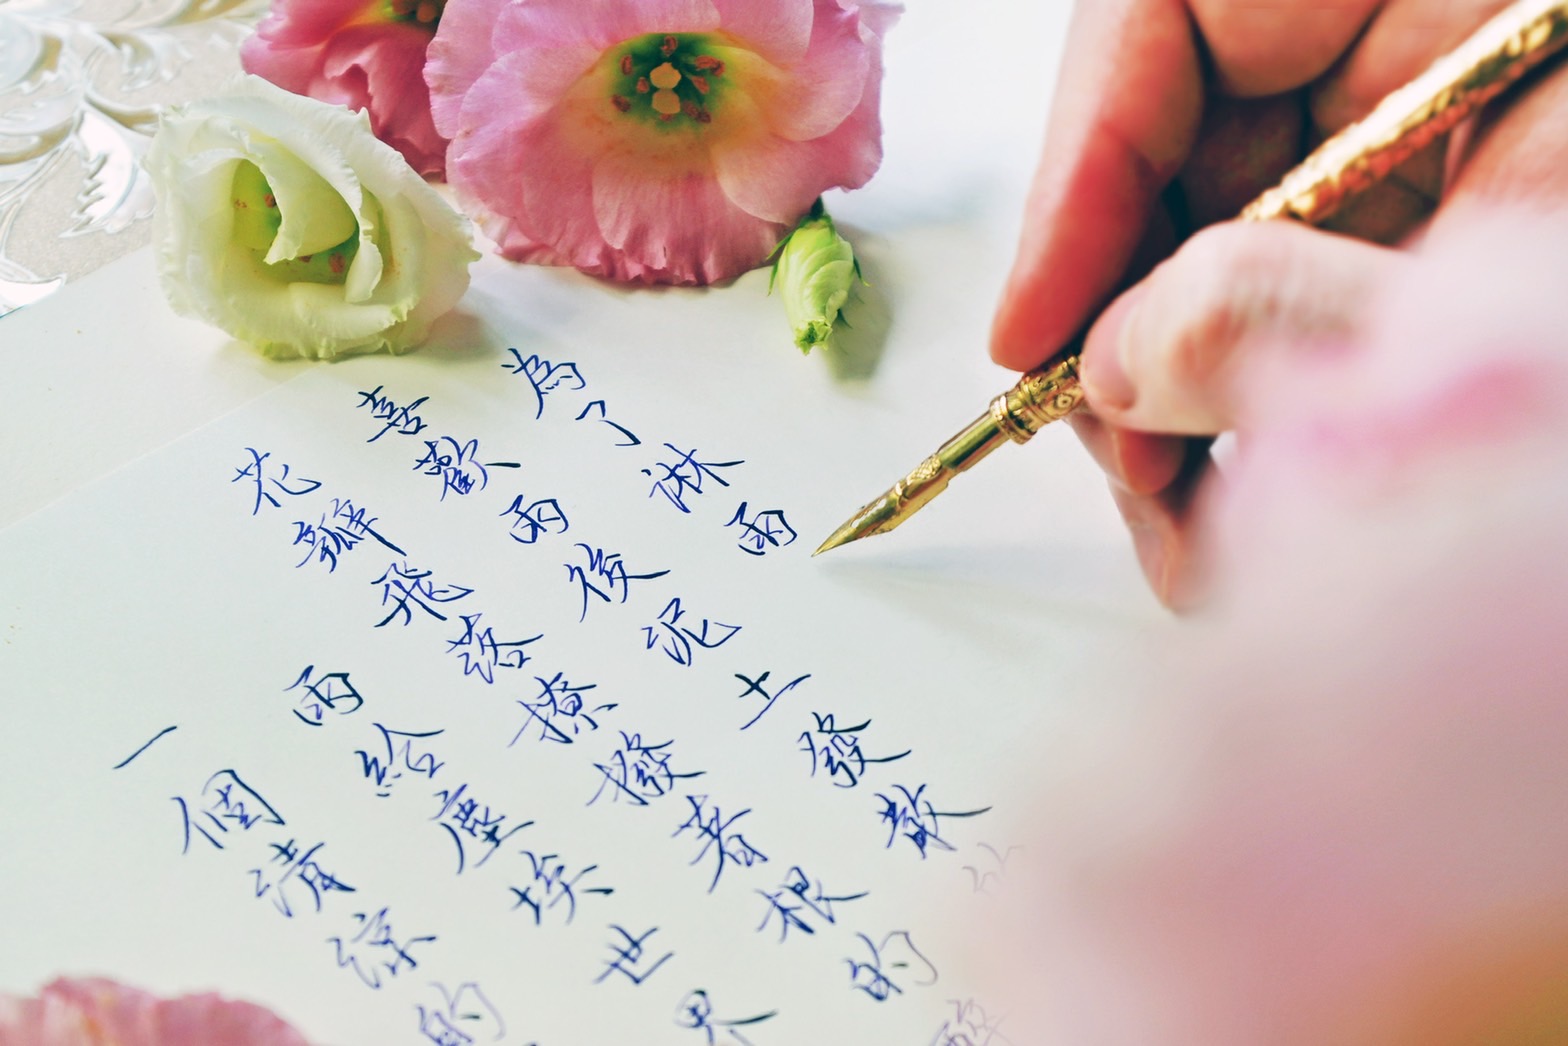 為了淋雨
喜歡雨後泥土發散
花瓣飛落撩撥著根的
雨給塵埃世界
一個清涼的